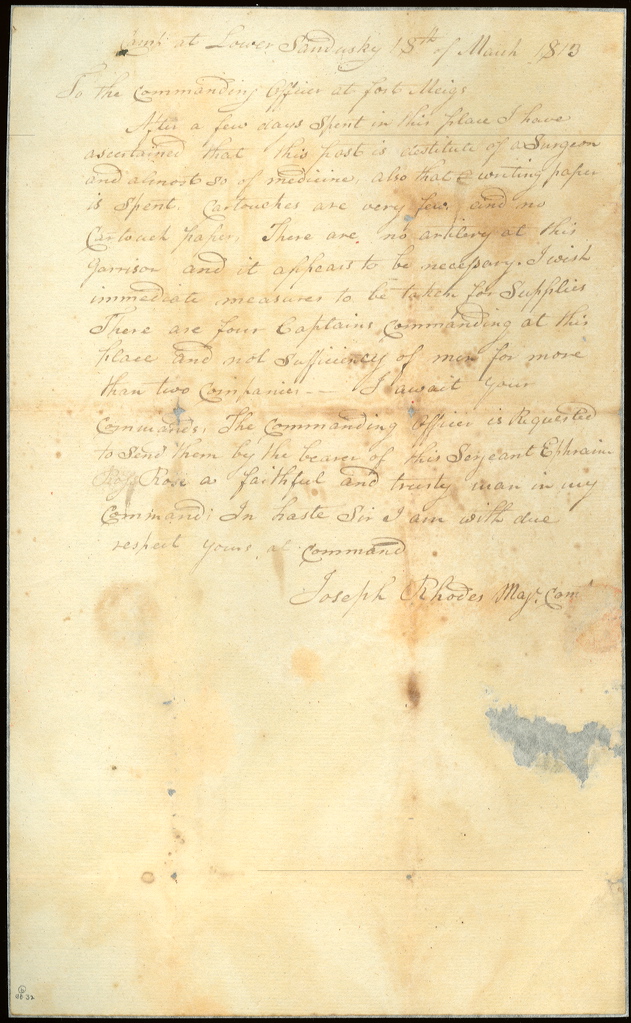 Camp at Lower Sandusky 18th of March 1813
To the Commanding Officer at fort Meigs
After a few days Spent in this place I have
ascertained that this post is destitute of a Surgeon
and almost so of medicine, also that writing paper
is Spent. Cartouches are very few, and no
Cartouch paper. There are no artilery at this
Garrison and it appears to be necessary. I wish
immediate measures to be taken for Supplies
There are four Captains Commanding at this
place and not Sufficiency of men for more
than two Companies -- I await your
Commands, The Commanding Officer is Requested
to Send them by the bearer of this Sergeant Ephraim
Rose a faithful and trusty man in my
Command; In haste Sir I am with due
respect yours at Command
Joseph Rhodes Majr. Comt